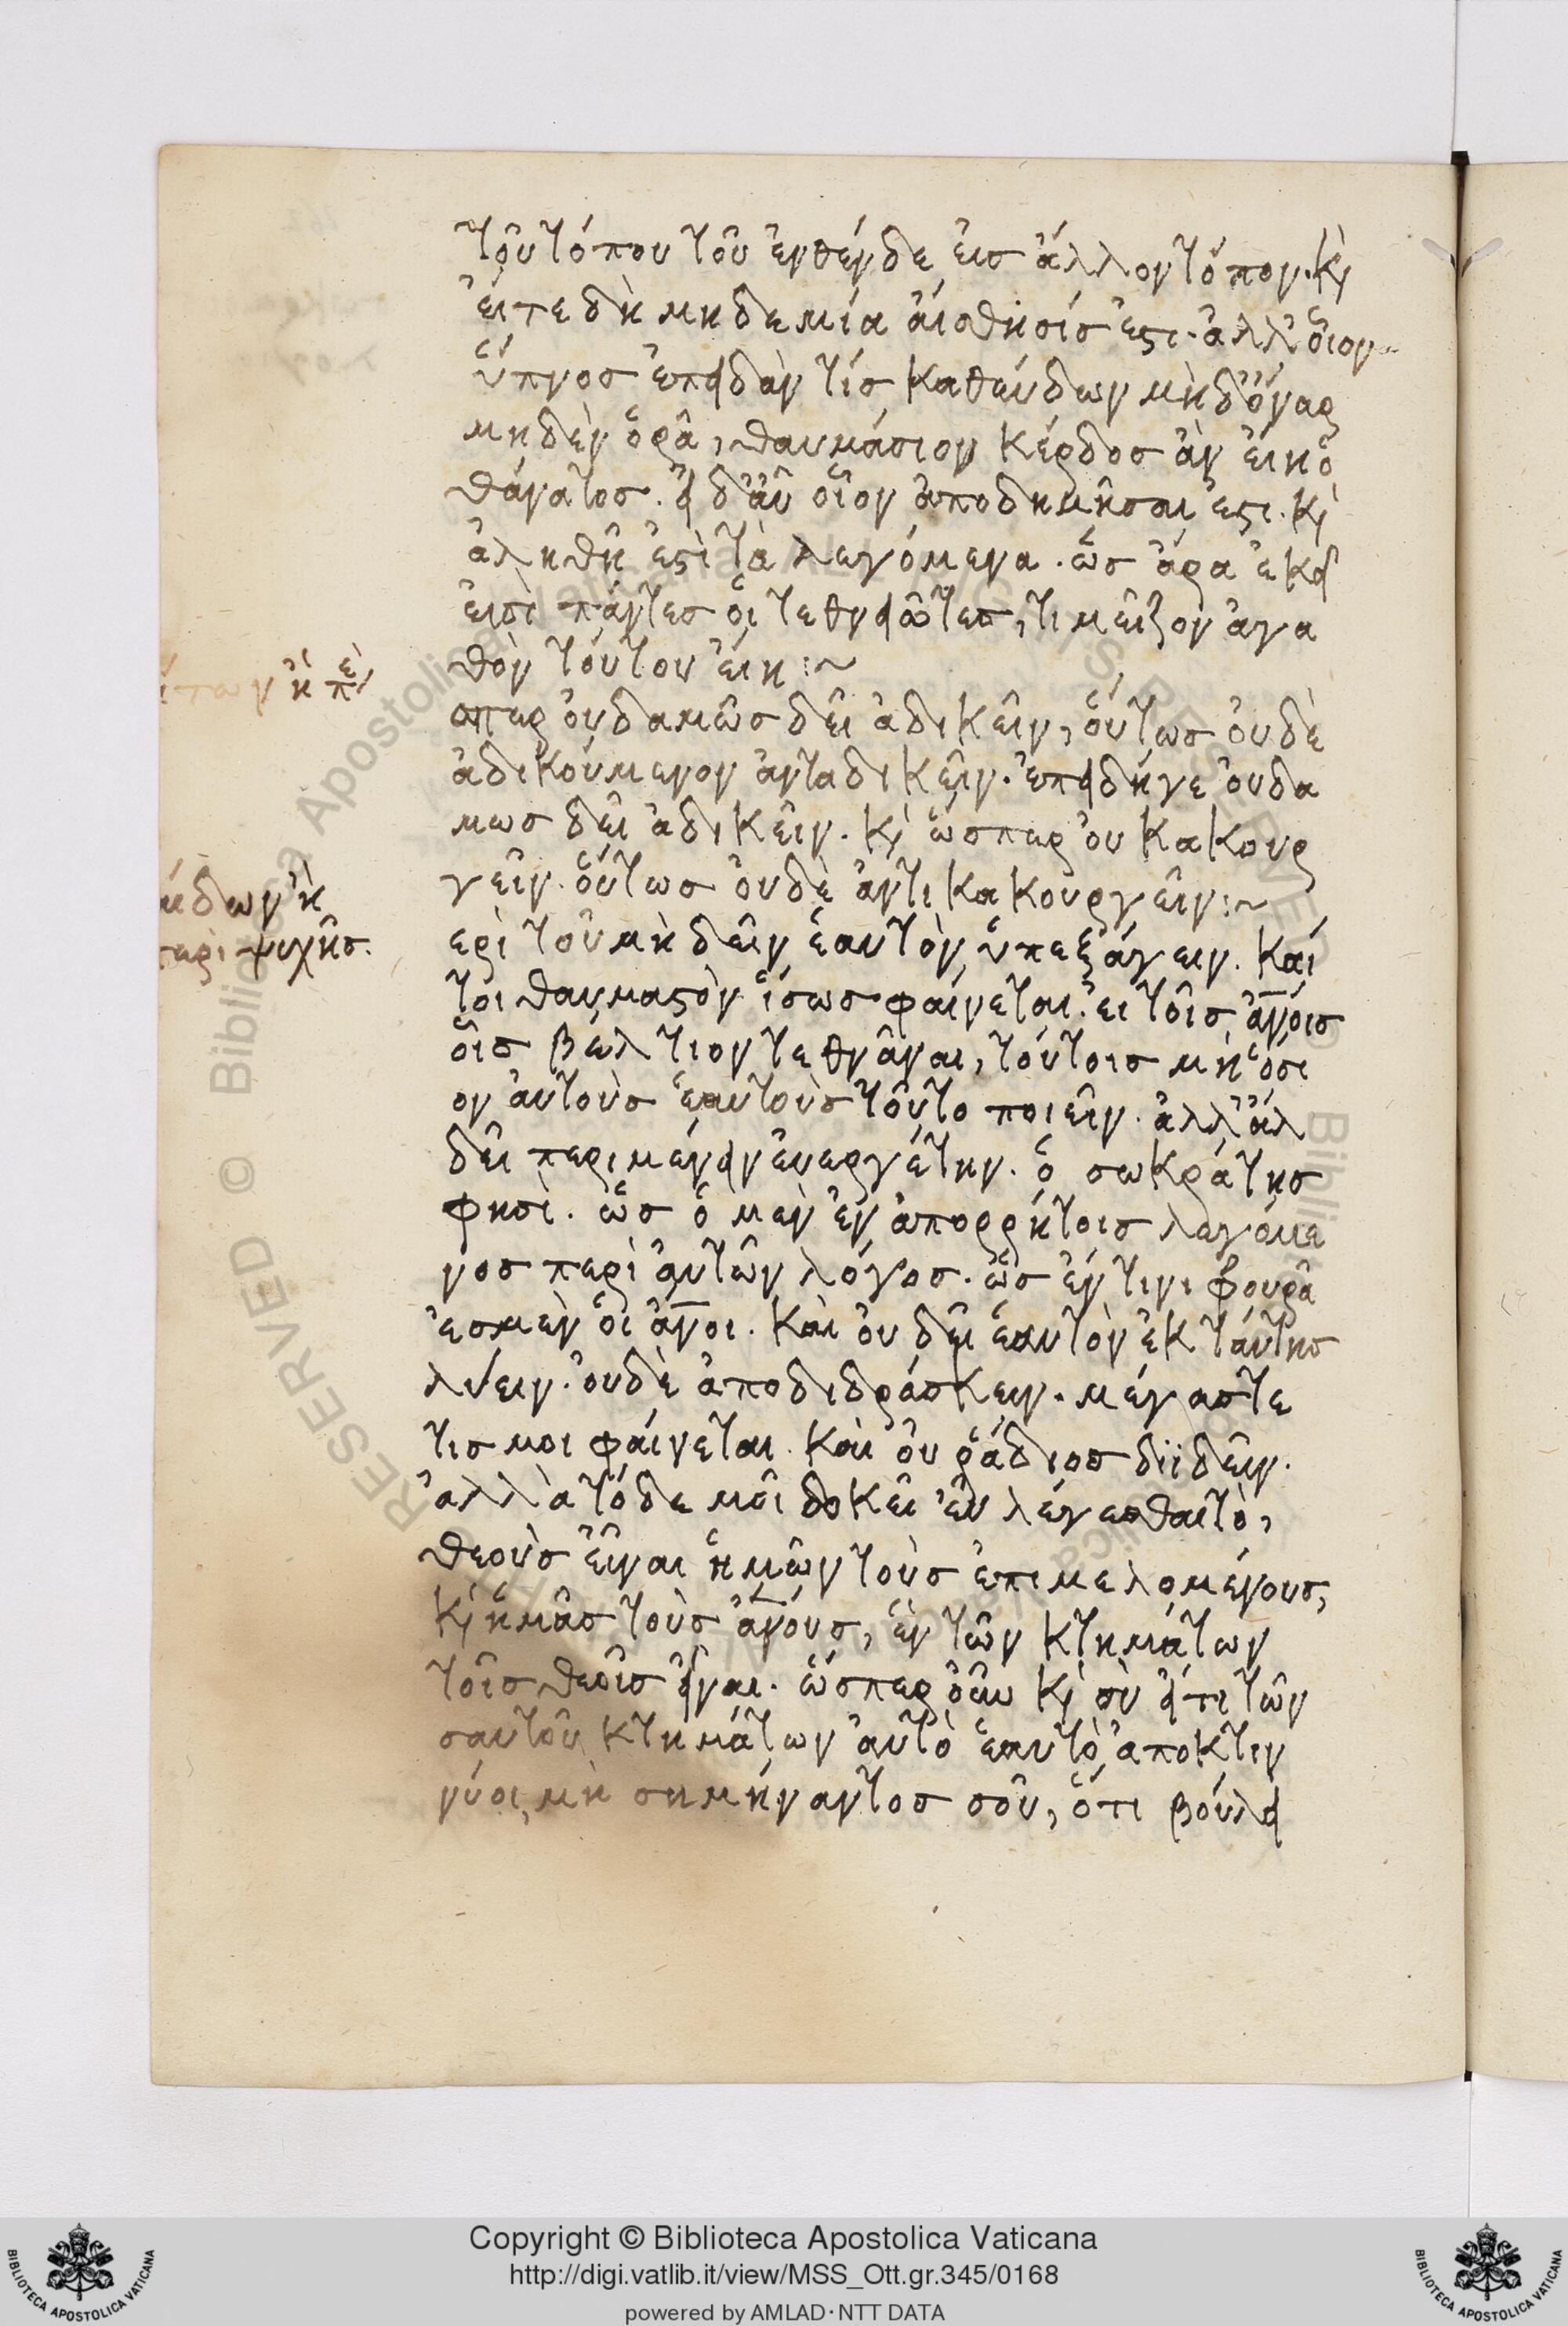 τοῦ τόπου τοῦ ἐνθένδε εἰσ ἄλλον τόπον. κὶ
εἴτε δὴ μηδεμία αἴσθησίσ ἐστι. ἀλλ' οἷον
ὕπνοσ ἐπειδάν τίσ καθεύδων μὴδ' ὄναρ
μηδὲν ὁρᾶ, θαυμάσιον κέρδοσ ἂν εἴη ὁ
θάνατοσ. εἰ δ' αὖ οἷον ἀποδημῆσαι ἐστι. κὶ
ἀληθῆ ἐστὶ τὰ λεγόμενα. ὡσ ἄρα ἐκεῖ
εἰσὶ πάντεσ οἱ τεθνειῶτεσ, τι μεῖζον ἀγα
θὸν τούτου εἴη :~
ίτων ἢ πὲ
σπερ οὐδαμῶσ δεῖ ἀδικεῖν, οὕτωσ οὐδὲ
ἀδικούμενον ἀνταδικεῖν. ἐπειδήγε οὐδα
μωσ δεῖ ἀδικεῖν. κὶ ὥσπερ οὐ κακουρ
γεῖν. οὕτωσ οὐδὲ ἀντικακουργεῖν :~
ίδων ἢ
περὶ ψυχῆσ.
ερὶ τοῦ μὴ δεῖν ἑαυτὸν ὑπεξάγειν. καί
τοι θαυμαστὸν ἴσωσ φαίνεται. εἰ τοῖσ ἀνοισ
οἷσ βέλτιον τεθνᾶναι, τούτοισ μὴ ὅσι
ον αὐτοὺσ ἑαυτοὺσ τοῦτο ποιεῖν. ἀλλ' ἄλ
δεῖ περιμένειν εὐεργέτην. ὁ σωκράτησ
φησὶ. ὡσ ὁ μὲν ἐν ἀπορρήτοισ λεγόμε
νοσ περὶ αὐτῶν λόγοσ. ὡσ ἔν τινι φρουρᾶ
ἐσμὲν οἱ ἄνοι. καὶ οὐ δεῖ ἑαυτὸν ἐκ ταύτησ
λύειν. οὐδὲ ἀποδιδράσκειν. μέγασ τε
τισ μοι φαίνεται. καὶ οὐ ῥάδιοσ διϊδεῖν.
ἀλλὰ τόδε μοῖ δοκεῖ εὖ λέγεσθαι τὸ,
θεοὺσ εἶναι ἡμῶν τοὺσ ἐπιμελομένουσ,
κὶ ἡμᾶσ τοὺσ ἀνόυσ, ἓν τῶν κτημάτων
τοῖσ θεοῖσ εἶναι. ὥσπερ οὖν κὶ σὺ εἴ τι τῶν
σαυτοῦ κτημάτων αὐτὸ ἑαυτὸ ἀποκτιν
νύοι, μὴ σημήναντοσ σοῦ, ὅτι βούλει
Copyright © Biblioteca Apostolica Vaticana
http://digi.vatlib.it/view/MSS_Ott.gr.345/0168
powered by AMLAD·NTT DATA